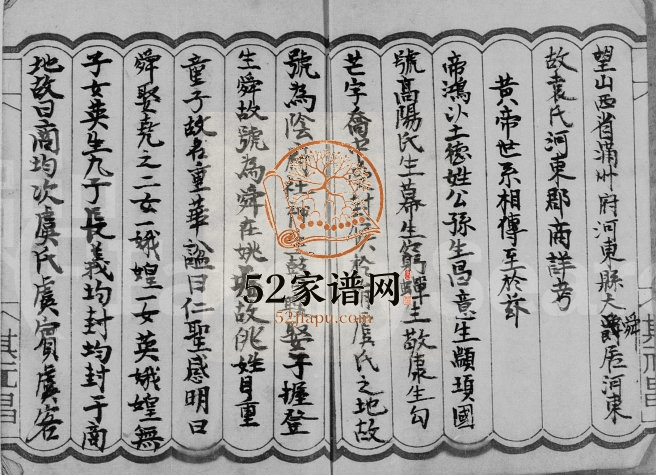 望山西省蒲州府河東縣大舜爵居河東
故袁氏河東郡商詳考
黃帝世系相傳至於茲
帝鴻沙土德姓公孫生昌意生顓頊國
號高陽氏生幕生窮蟬生敬康生勾
芒字喬 封 於 虞氏之地故
號為陰 娶子握登
生舜故號為舜在姚 故姚姓目重
童子故名重華謚曰仁聖感明曰
舜娶堯之二女一娥媓一女英娥媓無
子女英生九子長義均封均封于商
地故曰商均次虞氏虞賓虞客
其元昌
52家谱网
52jiapu.com